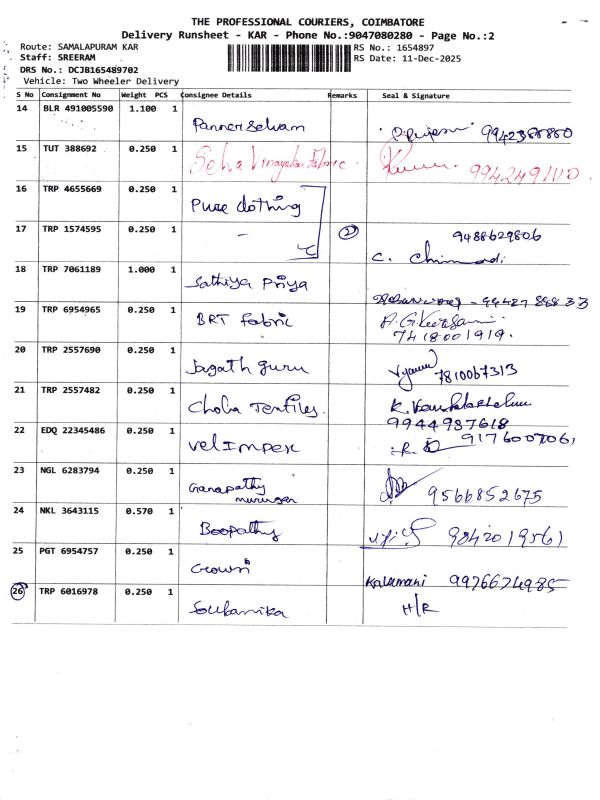 THE PROFESSIONAL COURIERS, COIMBATORE
Delivery Runsheet - KAR - Phone No.:9047080280 - Page No.:2
Route: SAMALAPURAM KAR
RS No.: 1654897
Staff: SREERAM
RS Date: 11-Dec-2025
DRS No.: DCJB165489702
Vehicle: Two Wheeler Delivery
S No Consignment No Weight PCS Consignee Details Remarks Seal & Signature
14 BLR 491005590 1.100 1 Pannerselvam
15 TUT 388692 0.250 1
16 TRP 4655669 0.250 1 Pure clothing
17 TRP 1574595 0.250 1 2 9488629806
C.
18 TRP 7061189 1.000 1 Sathiya Priya
19 TRP 6954965 0.250 1 BRT Fabric
7418001919.
20 TRP 2557690 0.250 1 Jagath guru 7810067313
21 TRP 2557482 0.250 1 Chola Textiles. K.
9944987618
22 EDQ 22345486 0.250 1 Vel Impex
23 NGL 6283794 0.250 1 Ganapathy murugan 9566852675
24 NKL 3643115 0.570 1 Boopathy 9842019561
25 PGT 6954757 0.250 1 Crown
Kalamani 9976674985
26 TRP 6016978 0.250 1 Soubarnika H/R